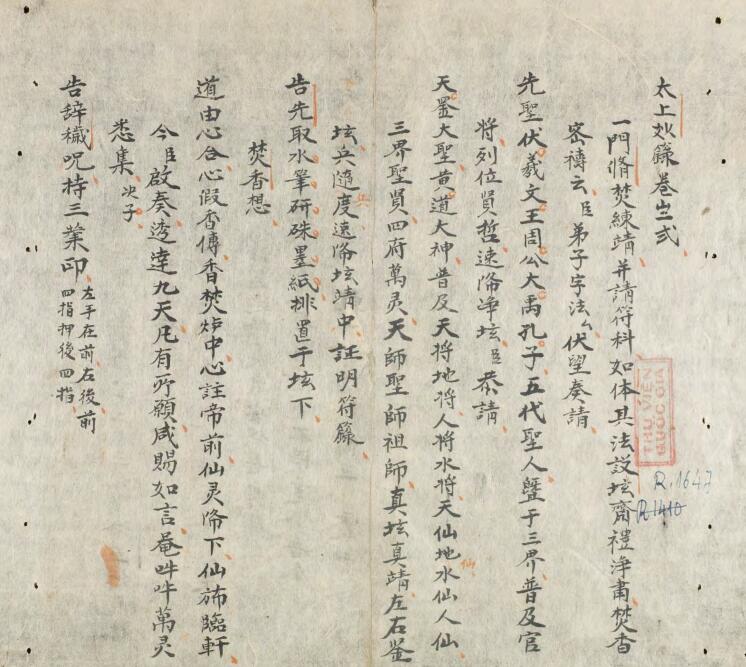 太上妙籙卷之弍
一門脩焚練靖并請符科如体具法設坛齋禮淨肅焚香
密禱云臣弟子字法厶伏望奏請
先聖伏羲文王周公大禹孔子五代聖人曁于三界普及官
將列位賢哲速降净坛臣恭請
天罡大聖黄道大神普及天将地将人将水将天仙地水仙人仙
仙
三界聖賢四府萬灵天師聖師祖師真坛真靖左右鉴
坛兵隨度速降坛靖中証明符籙
告先取水筆研硃墨紙排置于坛下
焚香想
道由心合心假香傳香焚炉中心註帝前仙灵降下仙旆臨軒
今臣啟奏逵達九天凡有所願咸賜如言菴吽吽萬灵
悉集次子
告辞穢呪持三業印左手在前右後前
四指押後四指
THƯ VIỆN
QUỐC GIA
R.1647
R.1410